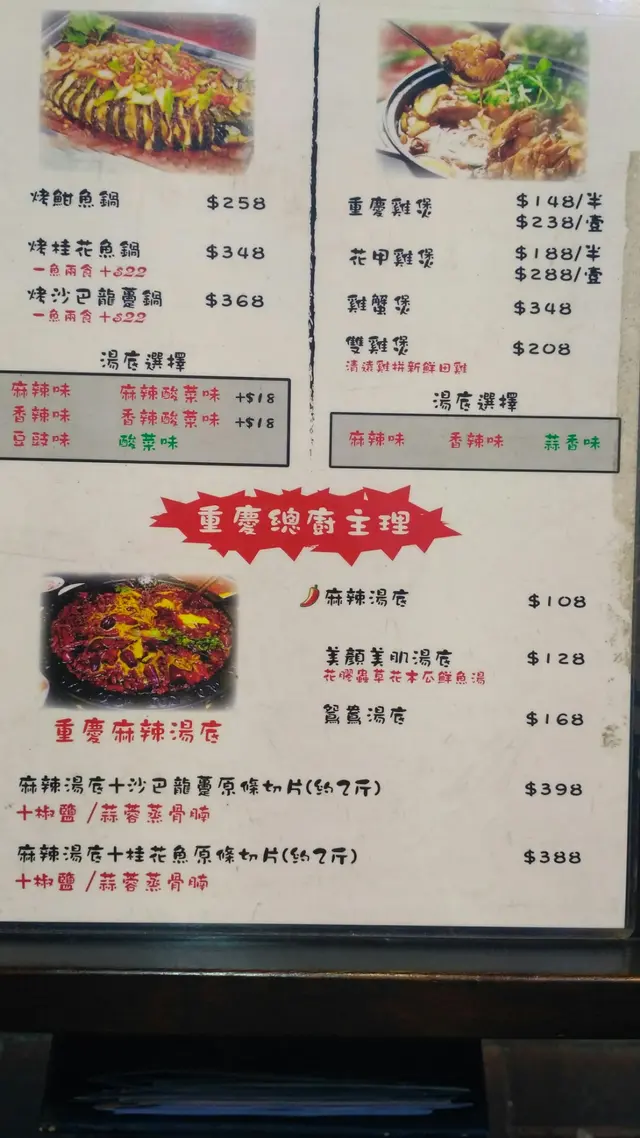 烤鮒魚鍋 $258
烤桂花魚鍋 $348
一魚兩食 +$22
烤沙巴龍躉鍋 $368
一魚兩食 +$22
湯底選擇
麻辣味 麻辣酸菜味 +$18
香辣味 香辣酸菜味 +$18
豆豉味 酸菜味
重慶雞煲 $148/半
$238/壹
花甲雞煲 $188/半
$288/壹
雞蟹煲 $348
雙雞煲 $208
清遠雞拼新鮮田雞
湯底選擇
麻辣味 香辣味 蒜香味
重慶總廚主理
重慶麻辣湯底
麻辣湯底 $108
美顏美肌湯底 $128
花膠蟲草花木瓜鮮魚湯
鴛鴦湯底 $168
麻辣湯底+沙巴龍躉原條切片(約2斤) $398
+椒鹽/蒜蓉蒸骨腩
麻辣湯底+桂花魚原條切片(約2斤) $388
+椒鹽/蒜蓉蒸骨腩